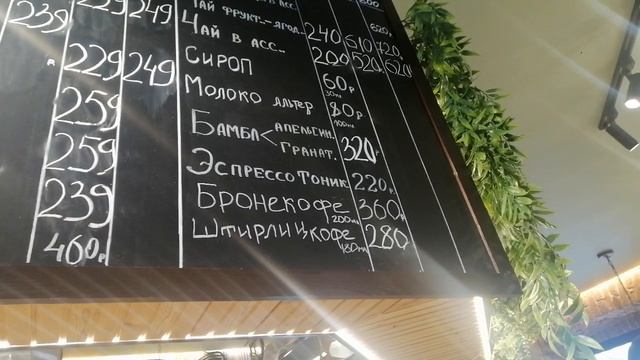 239 229 249
Чай фрукт.-ягод. 240 510 620
Чай в асс.. 200 520 620
229 249 Сироп 60р
30мл
259 Молоко альтер 80р
100мл
Бамбл апельсин.
гранат. 320р
259
Эспрессо Тоник 220р
239 Бронекофе 360р
200мл
460р Штирлиц кофе 280р